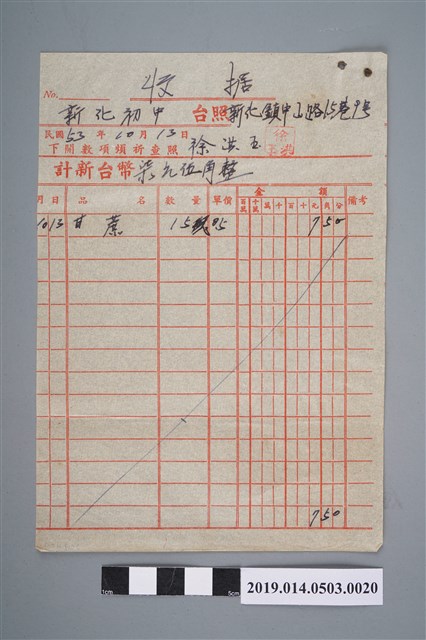 收據
No.
新化初中 台照 新化鎮中山路15巷9号
民國53年10月13日
下開數項煩祈查照 徐洪玉
計新台幣柒元伍角整
月 日 品名 數量 單價 金額 備考
百萬 十萬 萬 千 百 十 元 角 分
10 13 甘蔗 15 0.5 7 50
7 50
1cm 5cm
2019.014.0503.0020